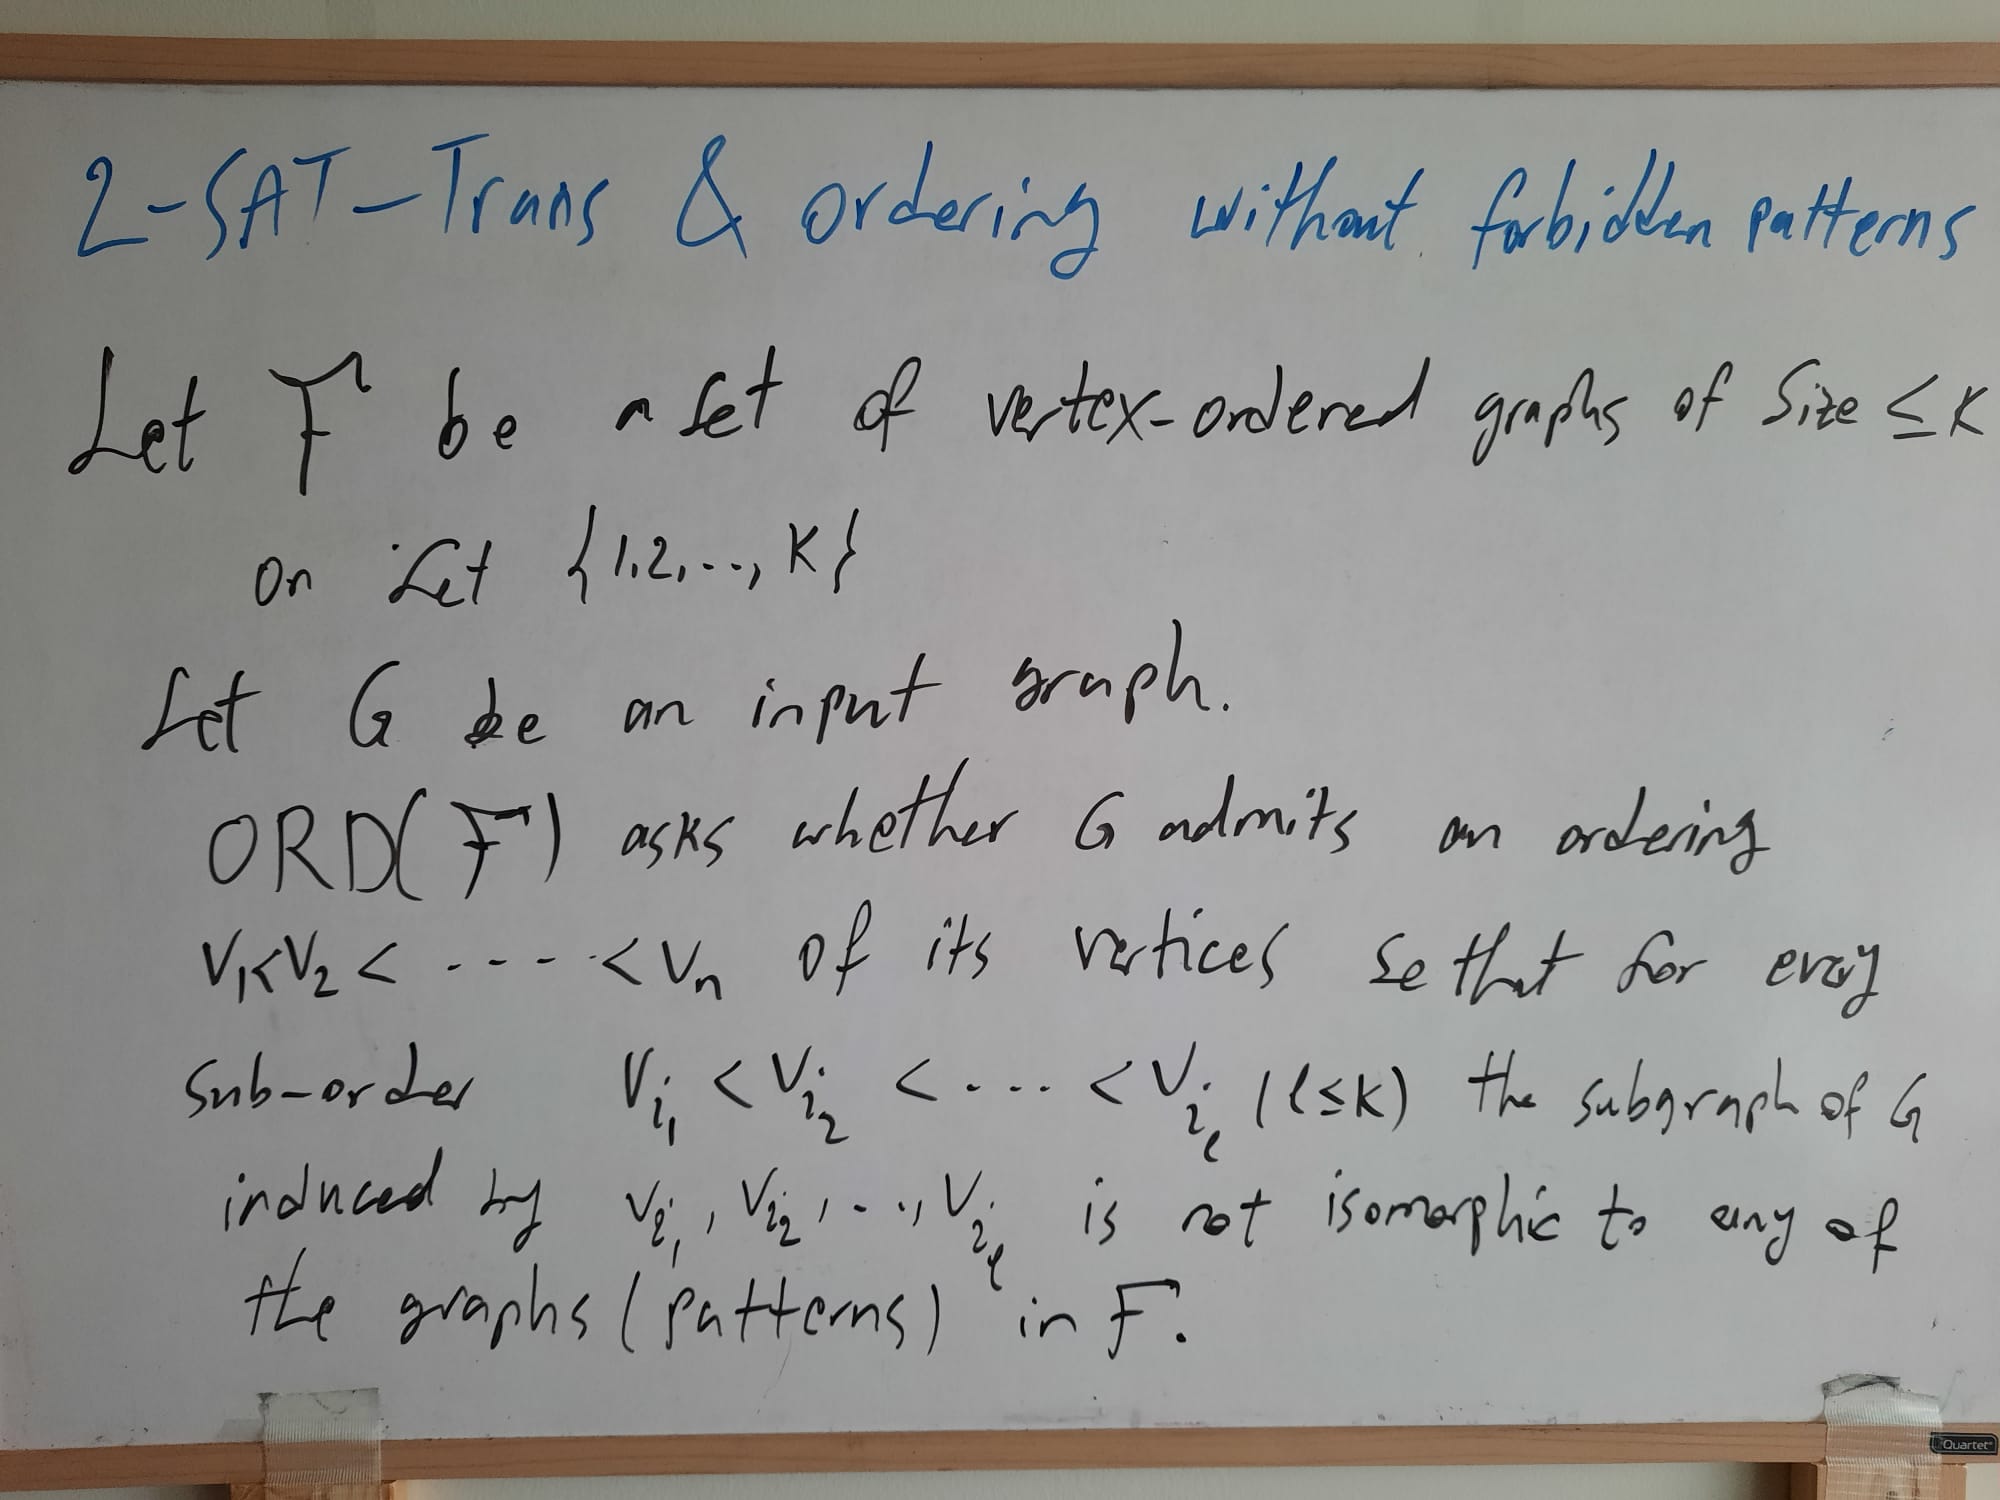 2-SAT-Trans & ordering without forbidden patterns
Let F be a set of vertex-ordered graphs of Size ≤ K
on set {1,2,..., K}
Let G be an input graph.
ORD(F) asks whether G admits an ordering
V₁<V₂ < ----- < Vₙ of its vertices so that for every
Sub-order V_{i₁} < V_{i₂} < .... < V_{i_ℓ} (ℓ≤K) the subgraph of G
induced by V_{i₁}, V_{i₂}, . . ., V_{i_ℓ} is not isomorphic to any of
the graphs (patterns) in F.
Quartet